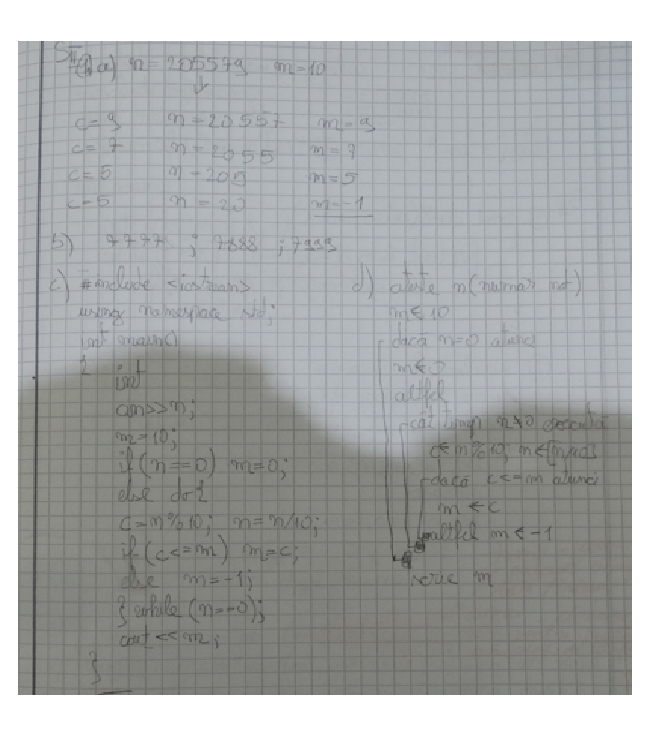 a) n = 205579 m = 10
↓
c = 9 n = 20557 m = 9
c = 7 n = 2055 m = 7
c = 5 n = 205 m = 5
c = 5 n = 20 m = -1
b) 7777 ; 7888 ; 7999
c) #include <iostream>
using namespace std;
int main()
{ int
cin>>n;
m=10;
if(n==0) m=0;
else do{
c=n%10; n=n/10;
if(c<=m) m=c;
else m=-1;
} while (n==0);
cout<<m;
}
d) citește n(număr nat)
m←10
dacă n=0 atunci
m←0
altfel
cât timp n≠0 execută
c←n%10;
dacă c<=m atunci
m←c
altfel m←-1
scrie m